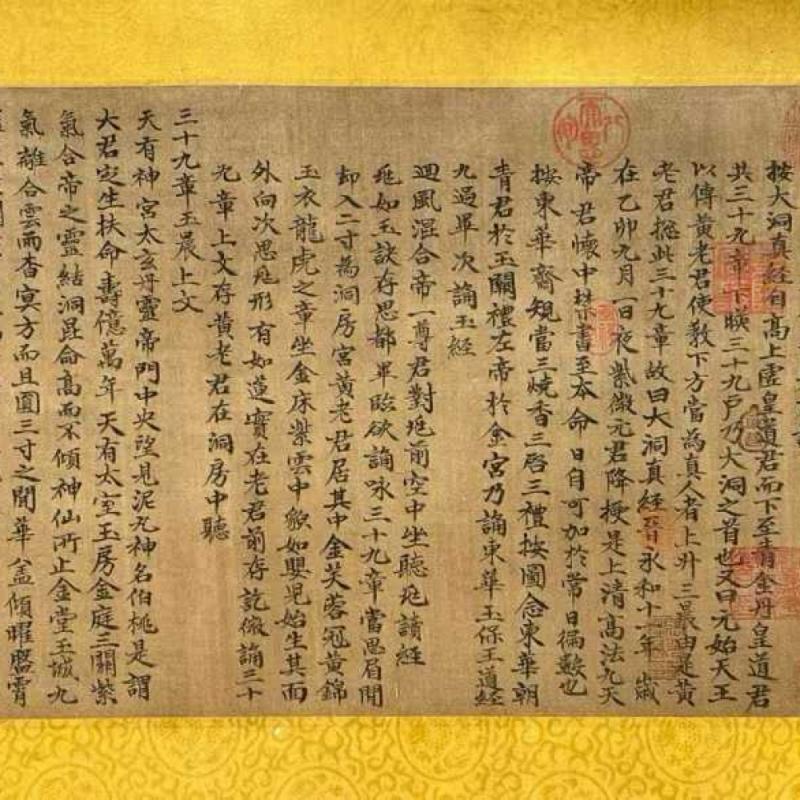 按大洞真經自高上虛皇道君而下至青金丹皇道君
共三十九章下暎三十九户乃大洞之首也又曰元始天王
以傳黄老君使教下方當為真人者上升三晨由是黄
老君總此三十九章故曰大洞真經晉永和十一年歲
在乙卯九月一日夜紫微元君降授是上清高法九天
帝君懷中禁書至本命日自可加於常日徧數也
按東華齋規當三燒香三啓三禮按圖念東華朝
青君於玉關禮左帝於金宮乃誦東華玉保王道經
九過畢次誦玉經
廻風混合帝一尊君對兆前空中坐聽兆讀經
兆如玉訣存思都畢臨欲誦咏三十九章當思眉間
却入二寸為洞房宮黄老君居其中金芙蓉冠黄錦
玉衣龍虎之章坐金床紫雲中貌如嬰兒始生其面
外向次思兆形有如蓮實在老君前存訖儼誦三十
九章上文存黄老君在洞房中聽
三十九章玉晨上文
天有神宮太玄丹靈帝門中央望見泥丸神名伯桃是謂
大君定生扶命壽億萬年天有太室玉房金庭三關紫
氣合帝之靈結洞崑命高而不傾神仙所止金堂玉城九
氣離合雲雨杳冥方而且圓三寸之間華盖傾曜盤霄